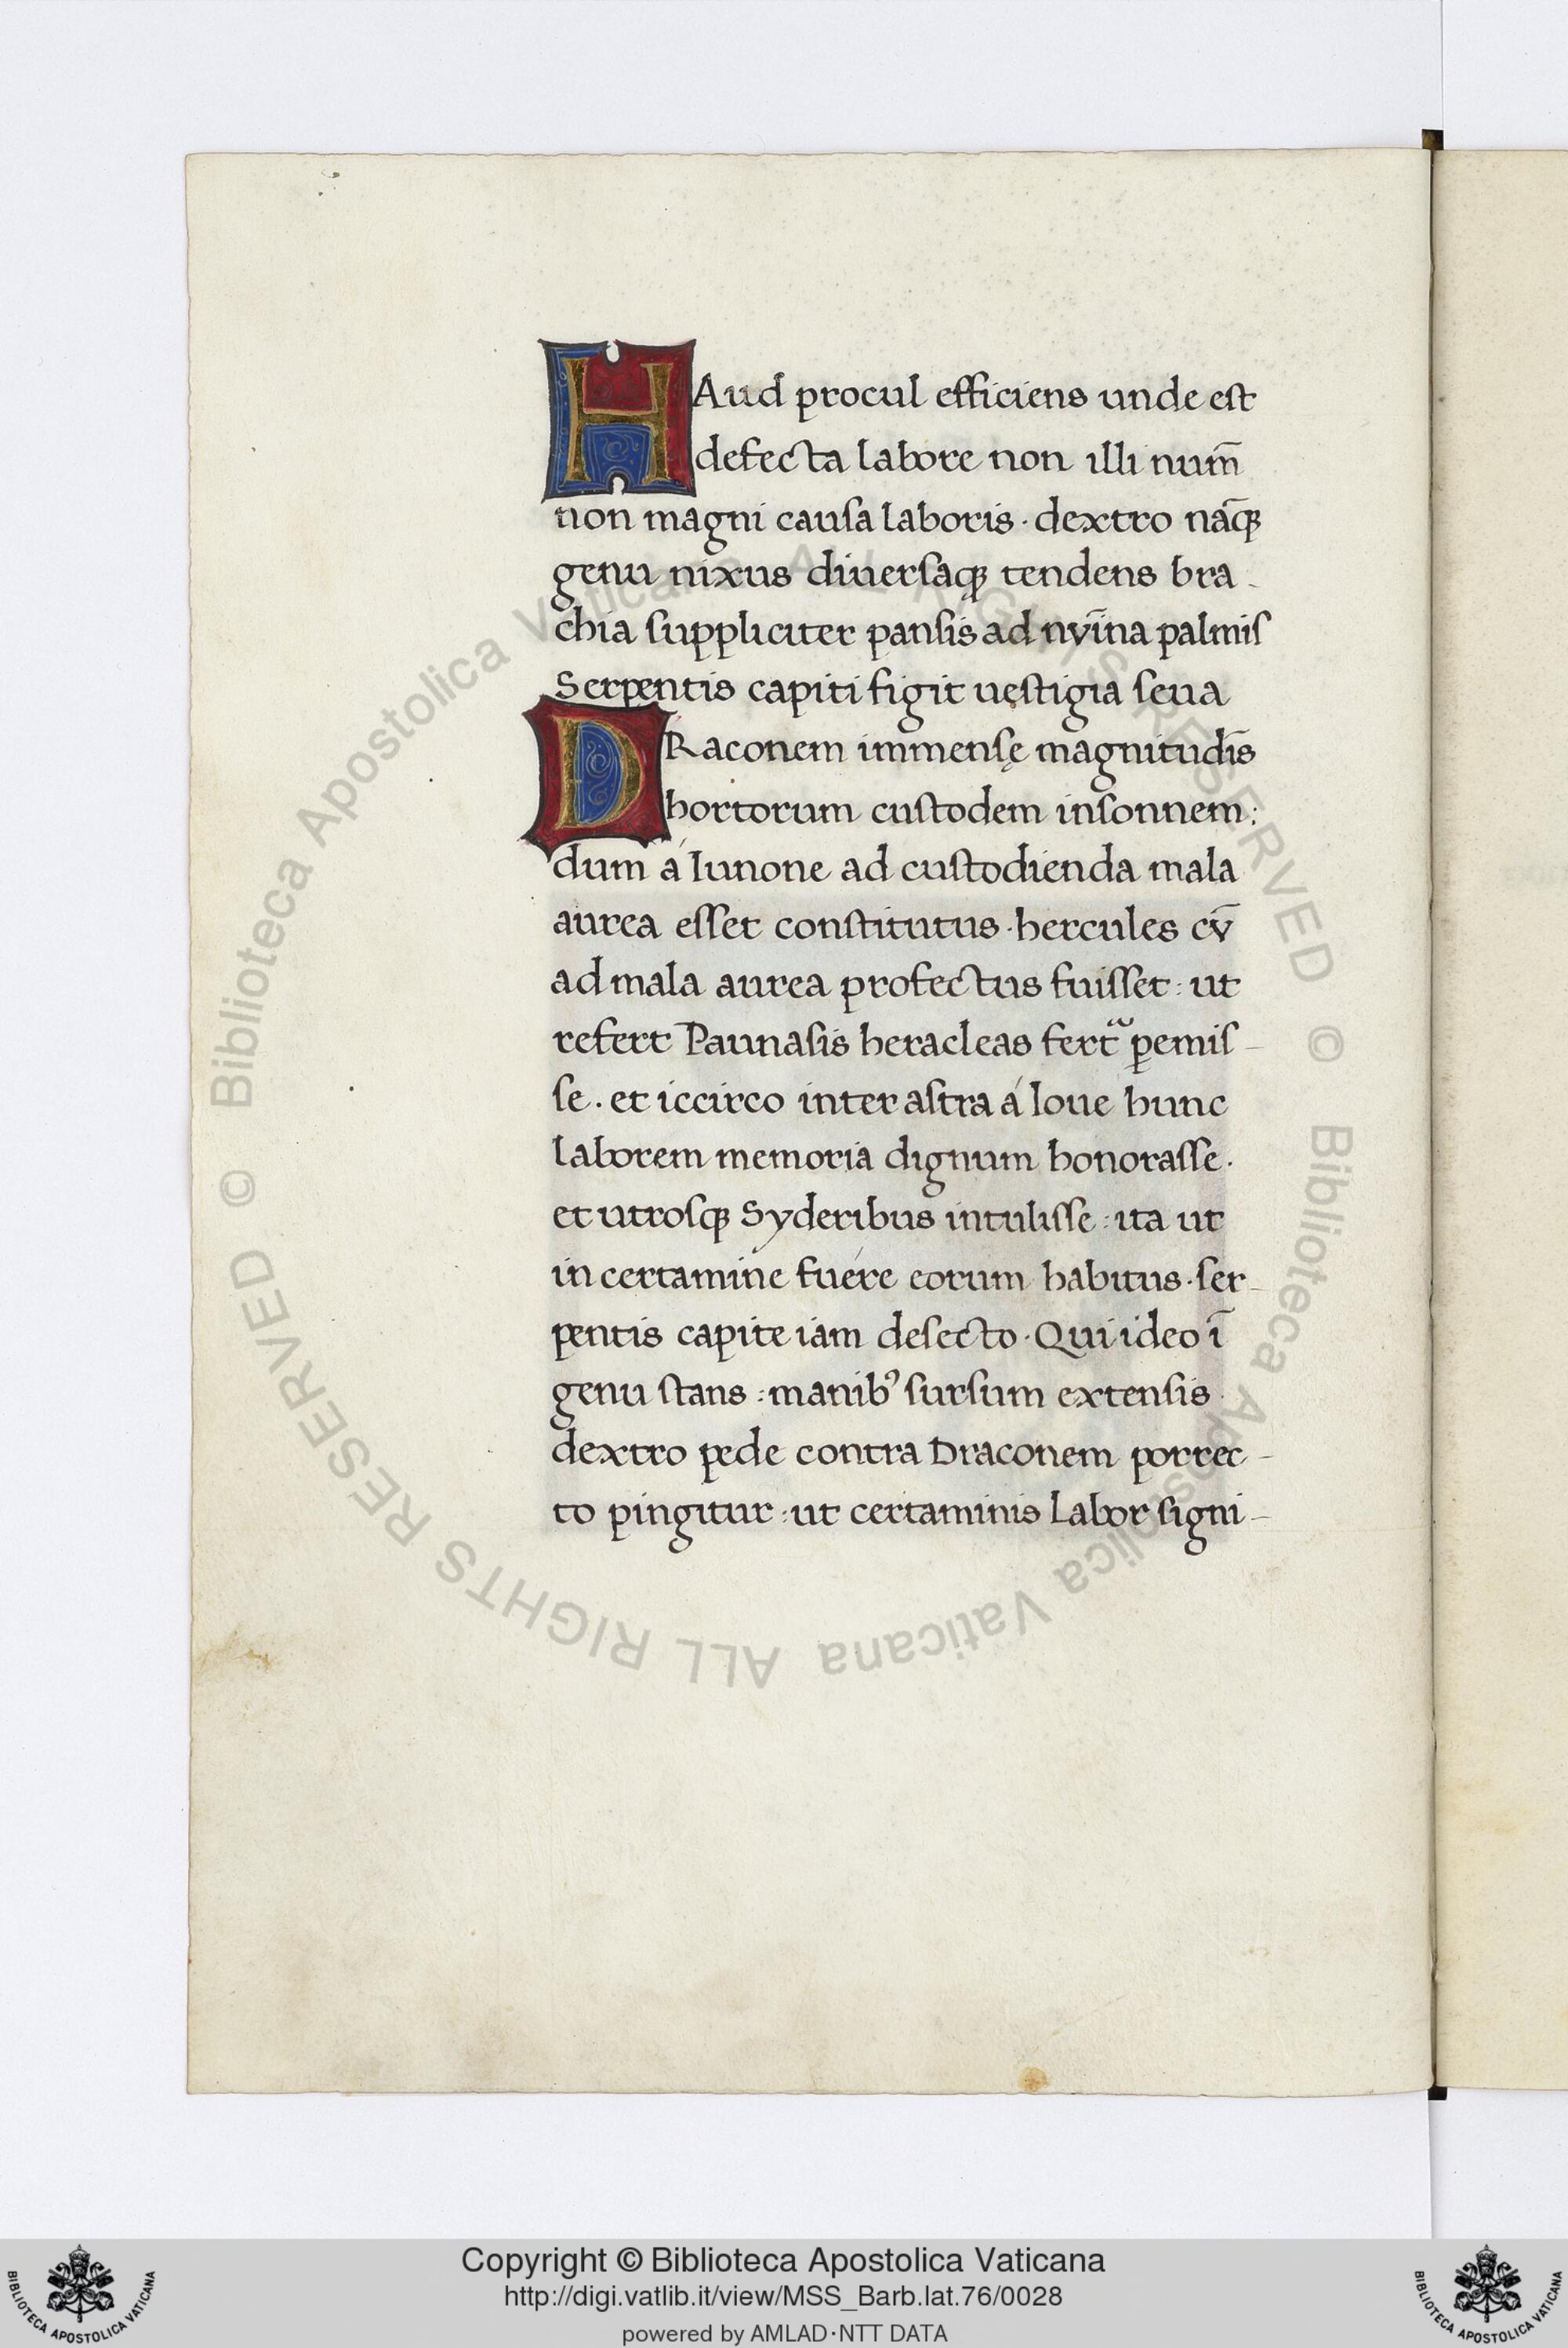 HAud procul efficiens unde est
defecta labore non illi num̄
non magni causa laboris · dextro nāqꝫ
genu nixus diuersaqꝫ tendens bra-
chia suppliciter pansis ad nvīna palmis
Serpentis capiti figit uestigia seua
DRaconem immensę magnitudīs
hortorum custodem insonnem :
dum á Iunone ad custodienda mala
aurea esset constitutus · hercules cv̄
ad mala aurea profectus fuisset : ut
refert Paunasis heracleas fertᷓ ꝑemis-
se . et iccirco inter astra á Ioue hunc
laborem memoria dignum honorasse .
et utrosqꝫ Syderibus intulisse : ita ut
in certamine fuére eorum habitus · ser-
pentis capite iam desecto · Qui ideo ī
genu stans : manibꝰ sursum extensis
dextro pede contra Draconem porrec-
to pingitur : ut certaminis labor signi-
© Biblioteca Apostolica Vaticana ALL RIGHTS RESERVED © Biblioteca Apostolica Vaticana ALL RIGHTS RESERVED
Copyright © Biblioteca Apostolica Vaticana
http://digi.vatlib.it/view/MSS_Barb.lat.76/0028
powered by AMLAD·NTT DATA
BIBLIOTECA APOSTOLICA VATICANA
BIBLIOTECA APOSTOLICA VATICANA